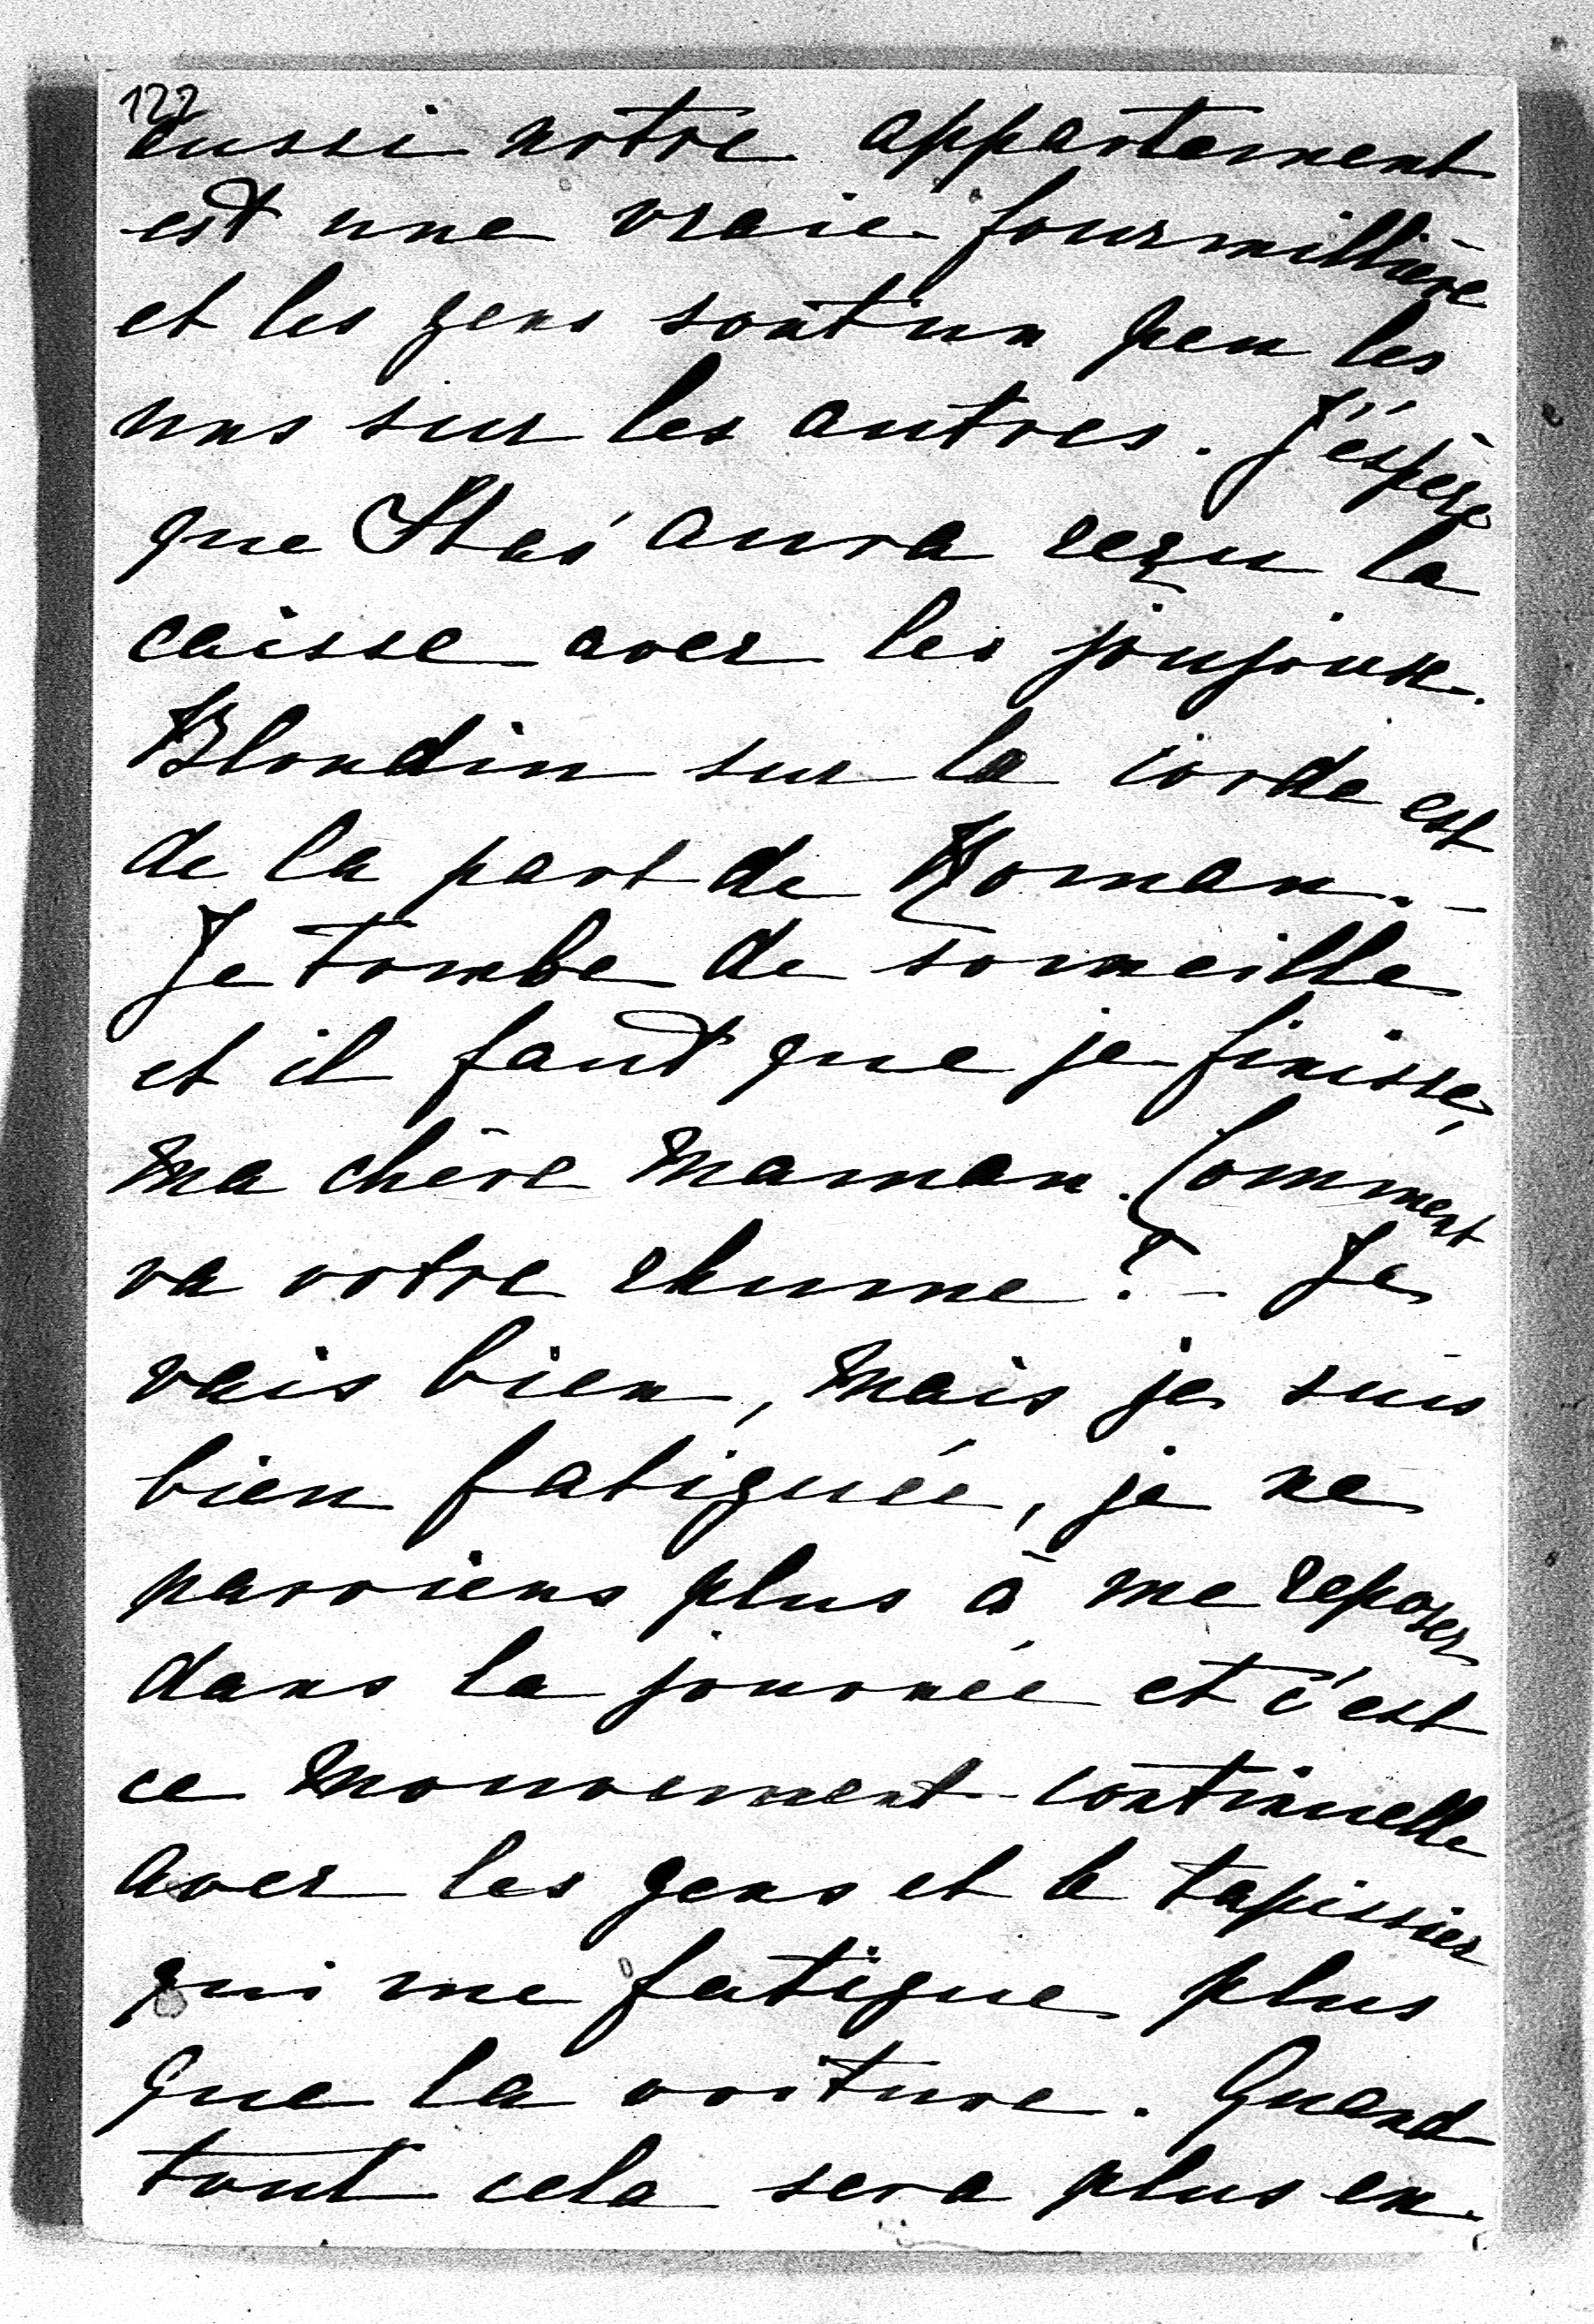 122
aussi notre appartement
est une vraie fourmillière
et les gens sont un peu les
uns sur les autres. J'éspère
que Staś aura reçu la
caisse avec les joujoux.
Blondin sur la corde est
de la part de Roman. –
Je tombe de sommeille
et il faut que je finisse,
ma chère Maman. Comment
va votre rhume? – Je
vais bien, mais je suis
bien fatiguée, je ne
parviens plus à me reposer
dans la journée et c'est
ce mouvement continuelle
avec les gens et le tapissier
qui me fatigue plus
que la voiture. Quand
tout cela sera plus en